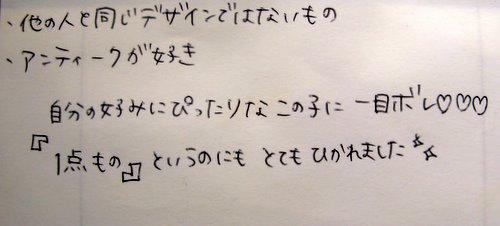 ・他の人と同じデザインではないもの
・アンティークが好き
自分の好みにぴったりなこの子に一目ボレ♡♡♡
『1点もの』というのにもとてもひかれました☆☆